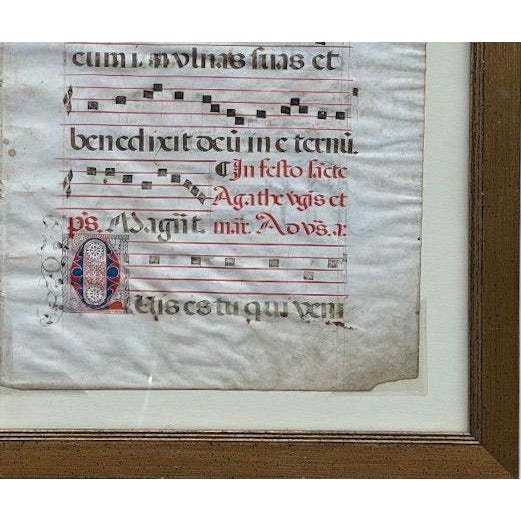 cum in ulnas suas et
benedixit deū in eternū.
¶ In festo sācte
Agathe v̄gīs et
ps. Magnīt. mar. Ad vs̄. a:
Quis es tu qui veni